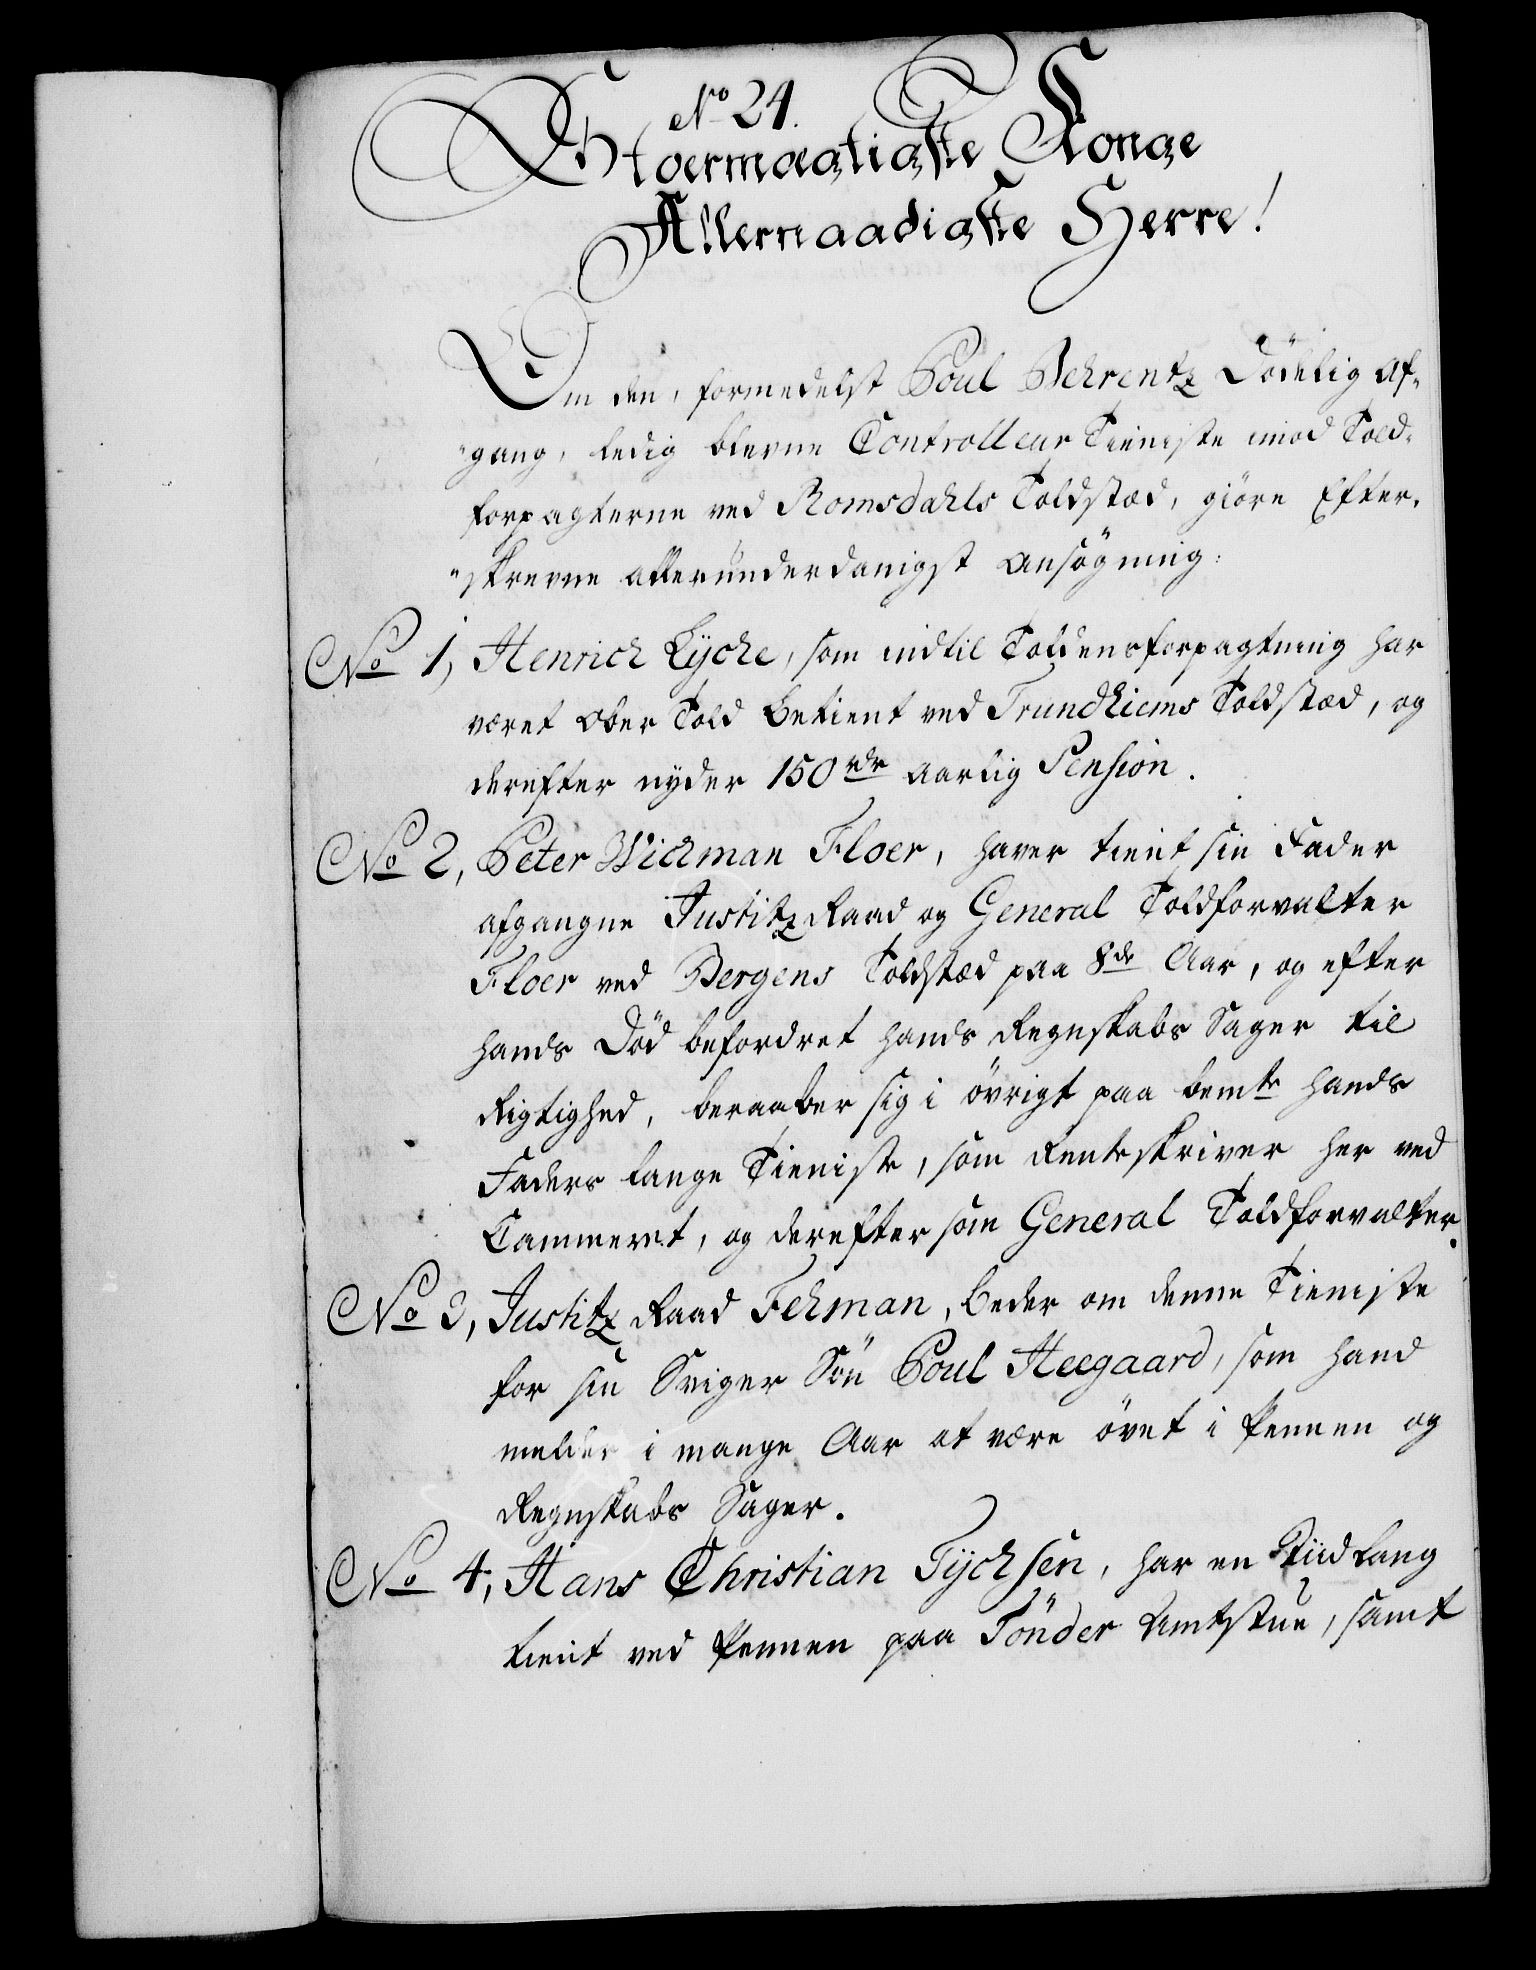 No 24.
Stoermægtigste Konge
Allernaadigste Herre!
Om den, formedelst Poul Behrentz Dödelig Af-
"gang, ledig blevne Controlleur Tieniste imod Told-
forpagterne ved Romsdahls Toldstæd, giöre Efter-
"skrevne allerunderdanigst Ansögning:
No 1, Henrich Lyche, som indtil Toldens forpagtning har
været Ober Told Betient ved Trundhiems Toldstæd, og
derefter nyder 150 rdr aarlig Pension.
No 2, Peter Wichman Floer, haver tient sin Fader
afgangne Justitz Raad og General Toldforvalter
Floer ved Bergens Toldstæd paa 8de Aar, og efter
hands Död befordret hands Regnskabs Sager til
Rigtighed, beraaber sig i övrigt paa bemte hands
Faders lange Tieniste, som Renteskriver her ved
Cammeret, og derefter som General Toldforvalter.
No 3, Justitz Raad Fehman, beder om denne Tieniste
for sin Sviger Sön Poul Heegaard, som hand
melder i mange Aar at være övet i Pennen og
Regnskabs Sager.
No 4, Hans Christian Tychsen, har en Tiid lang
tient ved Pennen paa Tönder Amtstue, samt